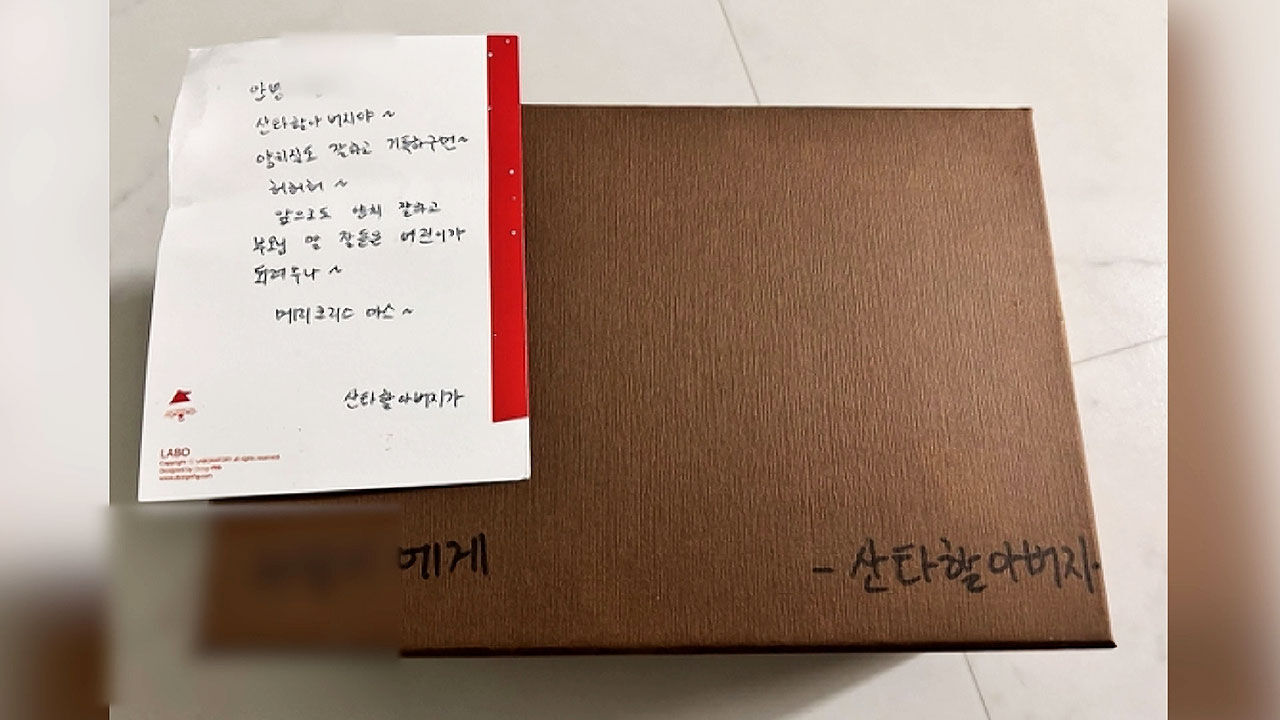 안녕
산타할아버지야~
양치질도 잘하고 기특하구면~
허허허~
앞으로도 양치 잘하고
부모님 말 잘듣는 어린이가
되려무나~
메리크리스 마스~
산타할아버지가
LABO
에게
- 산타할아버지.